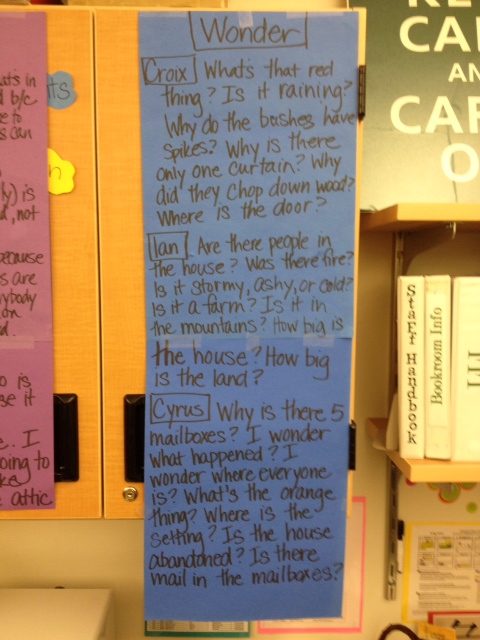 Wonder
Croix What's that red
thing? Is it raining?
Why do the bushes have
spikes? Why is there
only one curtain? Why
did they chop down wood?
Where is the door?
Ian Are there people in
the house? Was there fire?
Is it stormy, ashy, or cold?
Is it a farm? Is it in
the mountains? How big is
the house? How big
is the land?
Cyrus Why is there 5
mailboxes? I wonder
what happened? I
wonder where everyone
is? What's the orange
thing? Where is the
setting? Is the house
abandoned? Is there
mail in the mailboxes?
in
b/c
to
can
is
not
because
are
on
is
it
I
to
attic
CAR
O
Staff Handbook
Bookroom Info